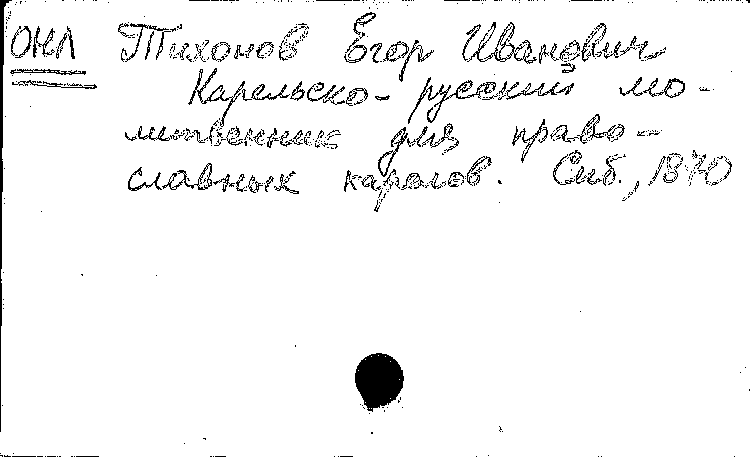 ОНЛ Тихонов Егор Иванович
Карельско-русский мо-
литвенник для право-
славных карелов. Спб., 1870